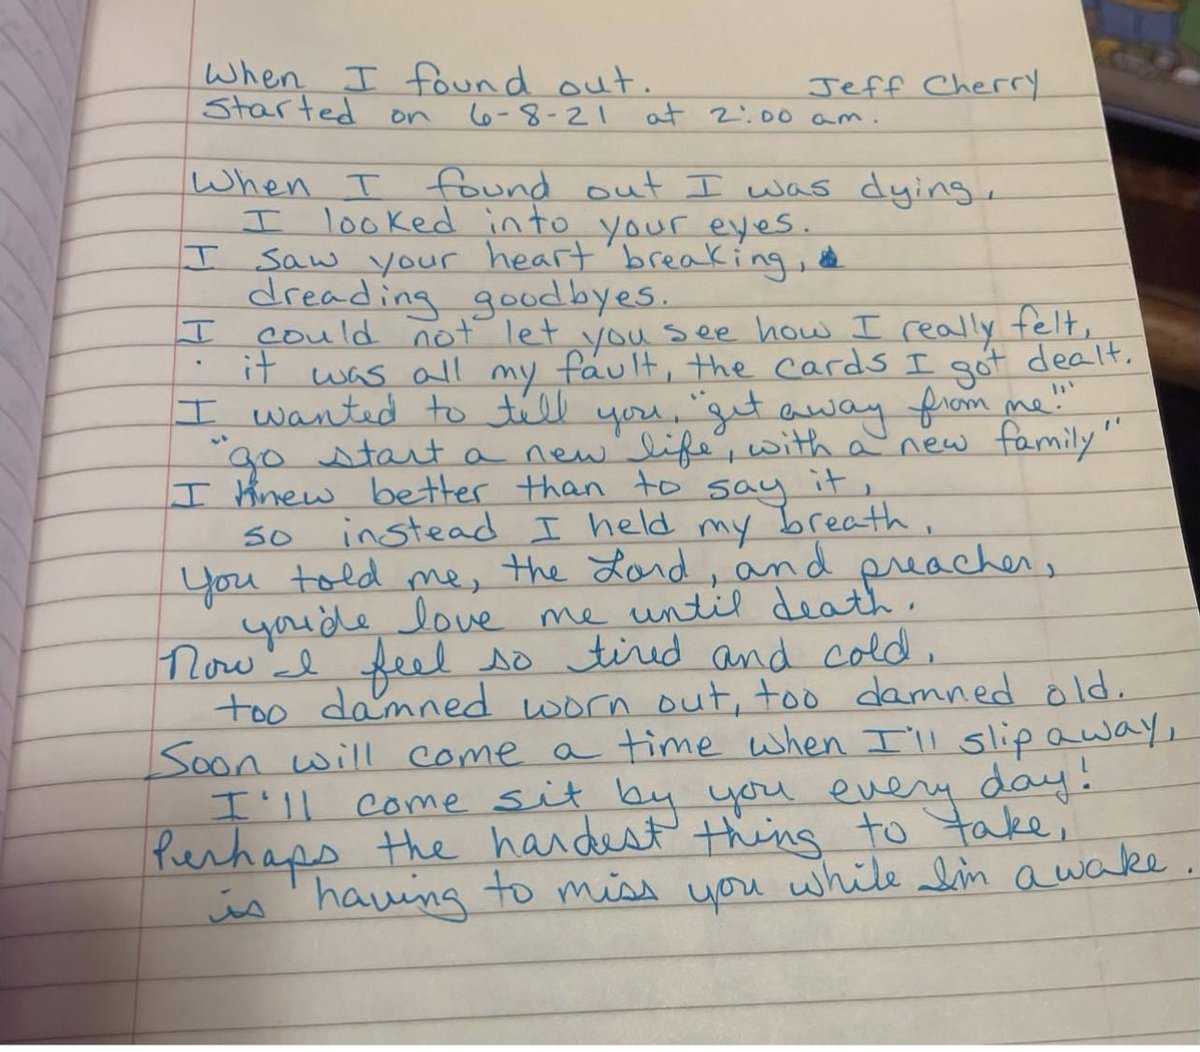 When I found out. Jeff Cherry
Started on 6-8-21 at 2:00 am.
When I found out I was dying,
I looked into your eyes.
I saw your heart breaking,
dreading goodbyes.
I could not let you see how I really felt,
it was all my fault, the cards I got dealt.
I wanted to tell you, "get away from me!"
"go start a new life, with a new family"
I knew better than to say it,
so instead I held my breath,
You told me, the Lord, and preacher,
you'de love me until death.
Now I feel so tired and cold,
too damned worn out, too damned old.
Soon will come a time when I'll slip away,
I'll come sit by you every day!
Perhaps the hardest thing to take,
is having to miss you while I'm awake.